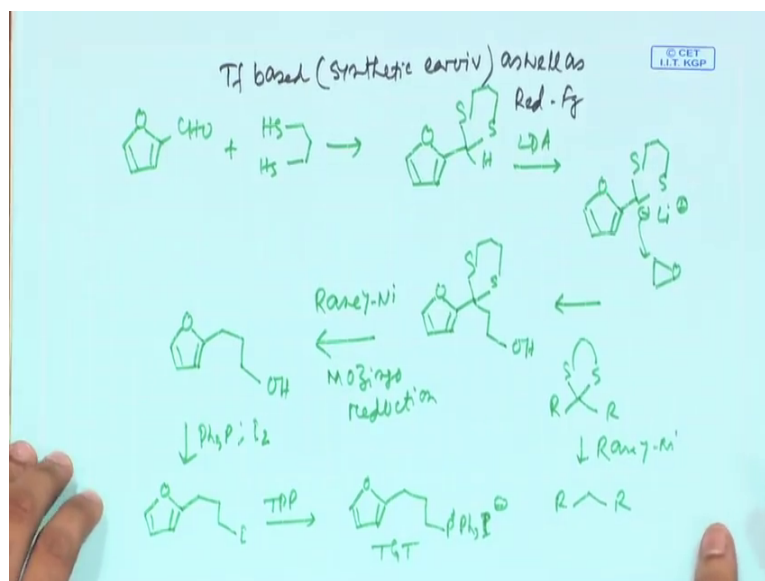 © CET
I.I.T. KGP
Tf based (Synthetic equiv) as well as
Red. Fg
O CHO + HS HS
O S S H
LDA
O S S Li ⊕
O
O S S OH
Raney-Ni
Mozingo
reduction
O OH
S S
R R
Raney-Ni
R R
Ph3P; I2
O I
TPP
O PPh3 I ⊖
TGT